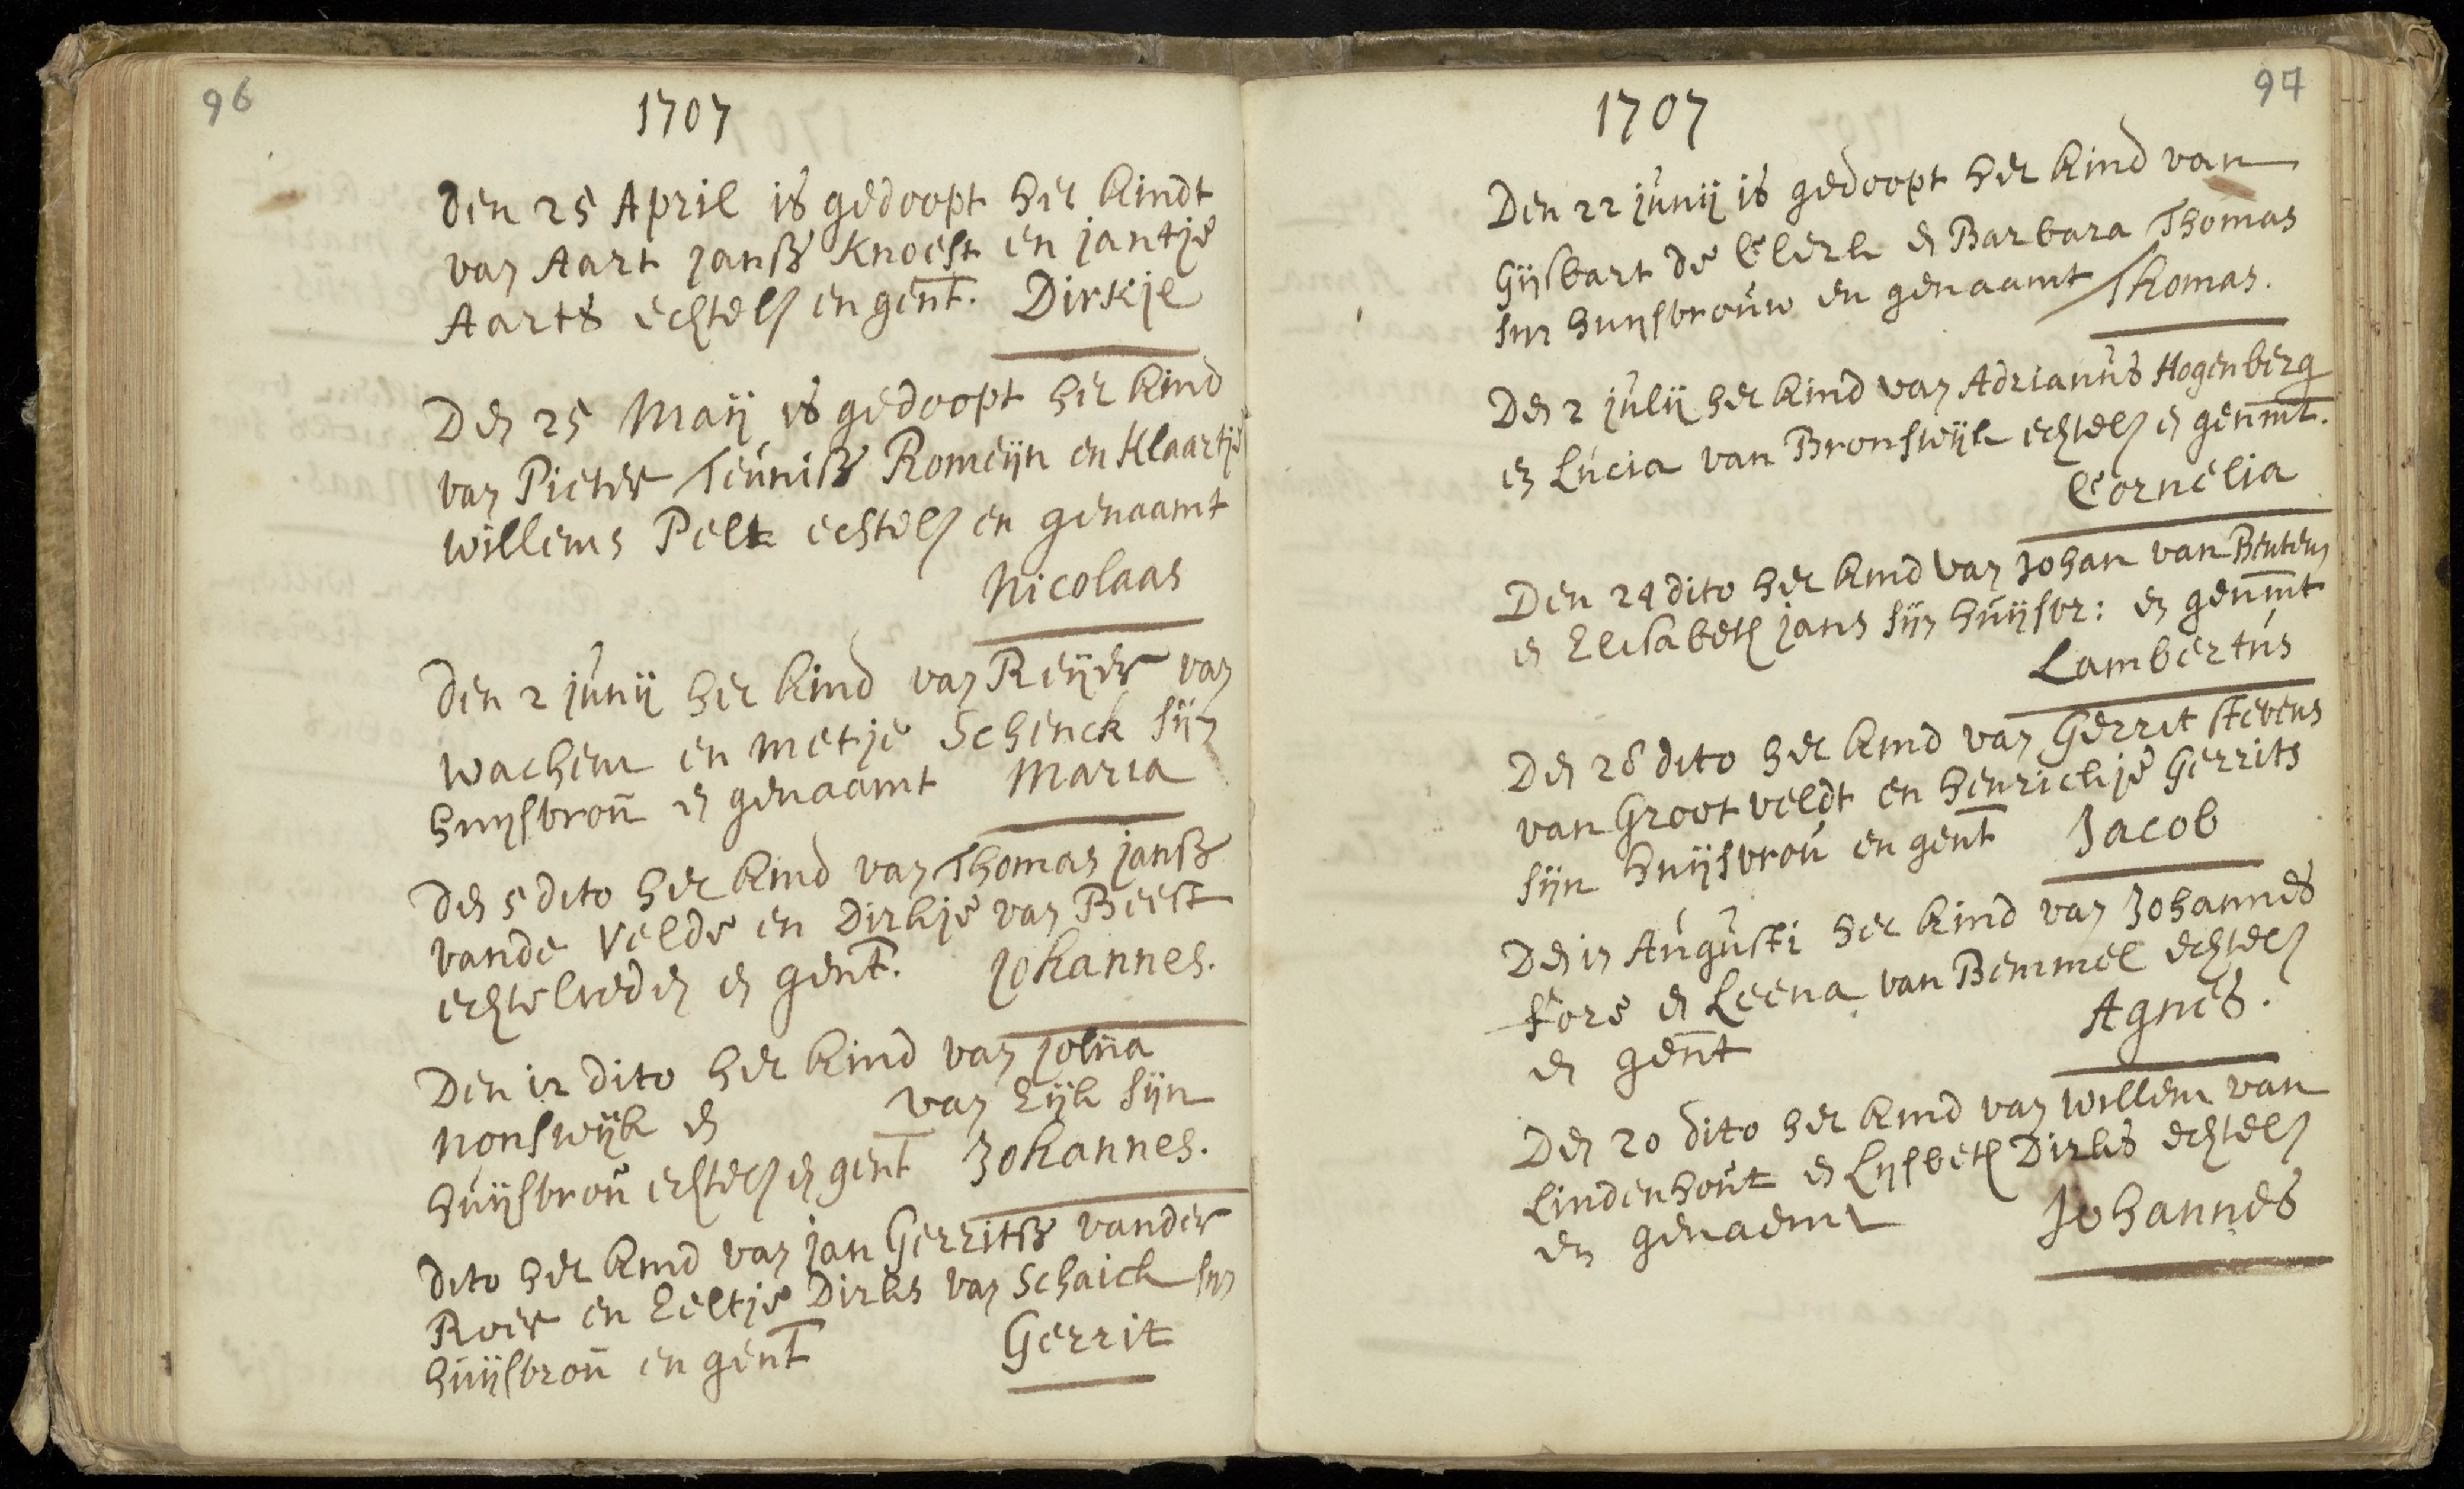 96
1707
Den 25 April is gedoopt het kindt
van Aart janss Knoest en jantje
Aarts echtels en gent. Dirkje
Den 25 Maij is gedoopt het kind
van Pieter Teúniss Romeijn en Klaartje
willems Pelt echtels en genaamt
Nicolaas
Den 2 júnij het kind van Reijer van
wachem en metje Schenck sijn
huijsvroú en genaamt Maria
Den 5 dito het kind van Thomas janss
vande Velde en Dirkje van Beest
echtelieden en gent. Johannes.
Den 12 dito het kind van
nonswijk en van Eijk sijn
húijsvroú echtels en gent Johannes.
dito het kind van jan Gerritss vander
Roer en Eeltje Dirks van Schaick sijn
húijsvroú en gent Gerrit
97
1707
Den 22 júnij is gedoopt het kind van
Gijsbart de Clerk en Barbara Thomas
sijn huijsvroúw en genaamt Thomas.
Den 2 júlij het kind van Adrianús Hogenberg
en Lúcia van Bronswijk echtels en genmt.
Cornelia
Den 24 dito het kind van Johan van
en Elisabeth jans sijn húijsvr: en genmt
Lambertús
Den 28 dito het kind van Gerrit stevens
van Grootveldt en henrickje Gerrits
sijn huijsvroú en gent Jacob
Den Aúgústi het kind van Johannes
fore en Leena van Bemmel echtels
en gent Agnes.
Den 20 dito het kind van willem van
Lindenhoút en Lijsbeth Dirks echtels
en genaemt Johannes